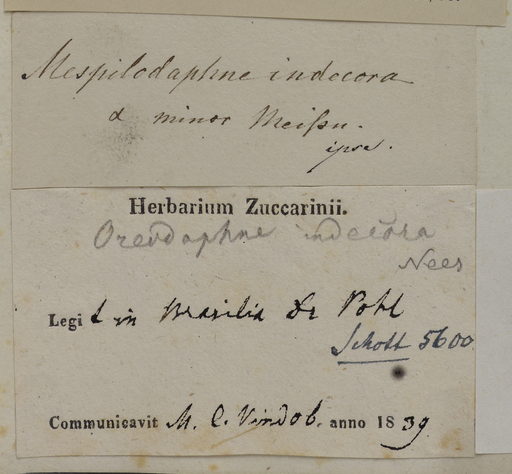 Mespilodaphne indecora
α minor Meißn.
ipse.
Herbarium Zuccarinii.
Oreodaphne indecora
Nees
Legit in Brasilia Dr Pohl
Schott 5600
Communicavit M. C. Vindob. anno 1839